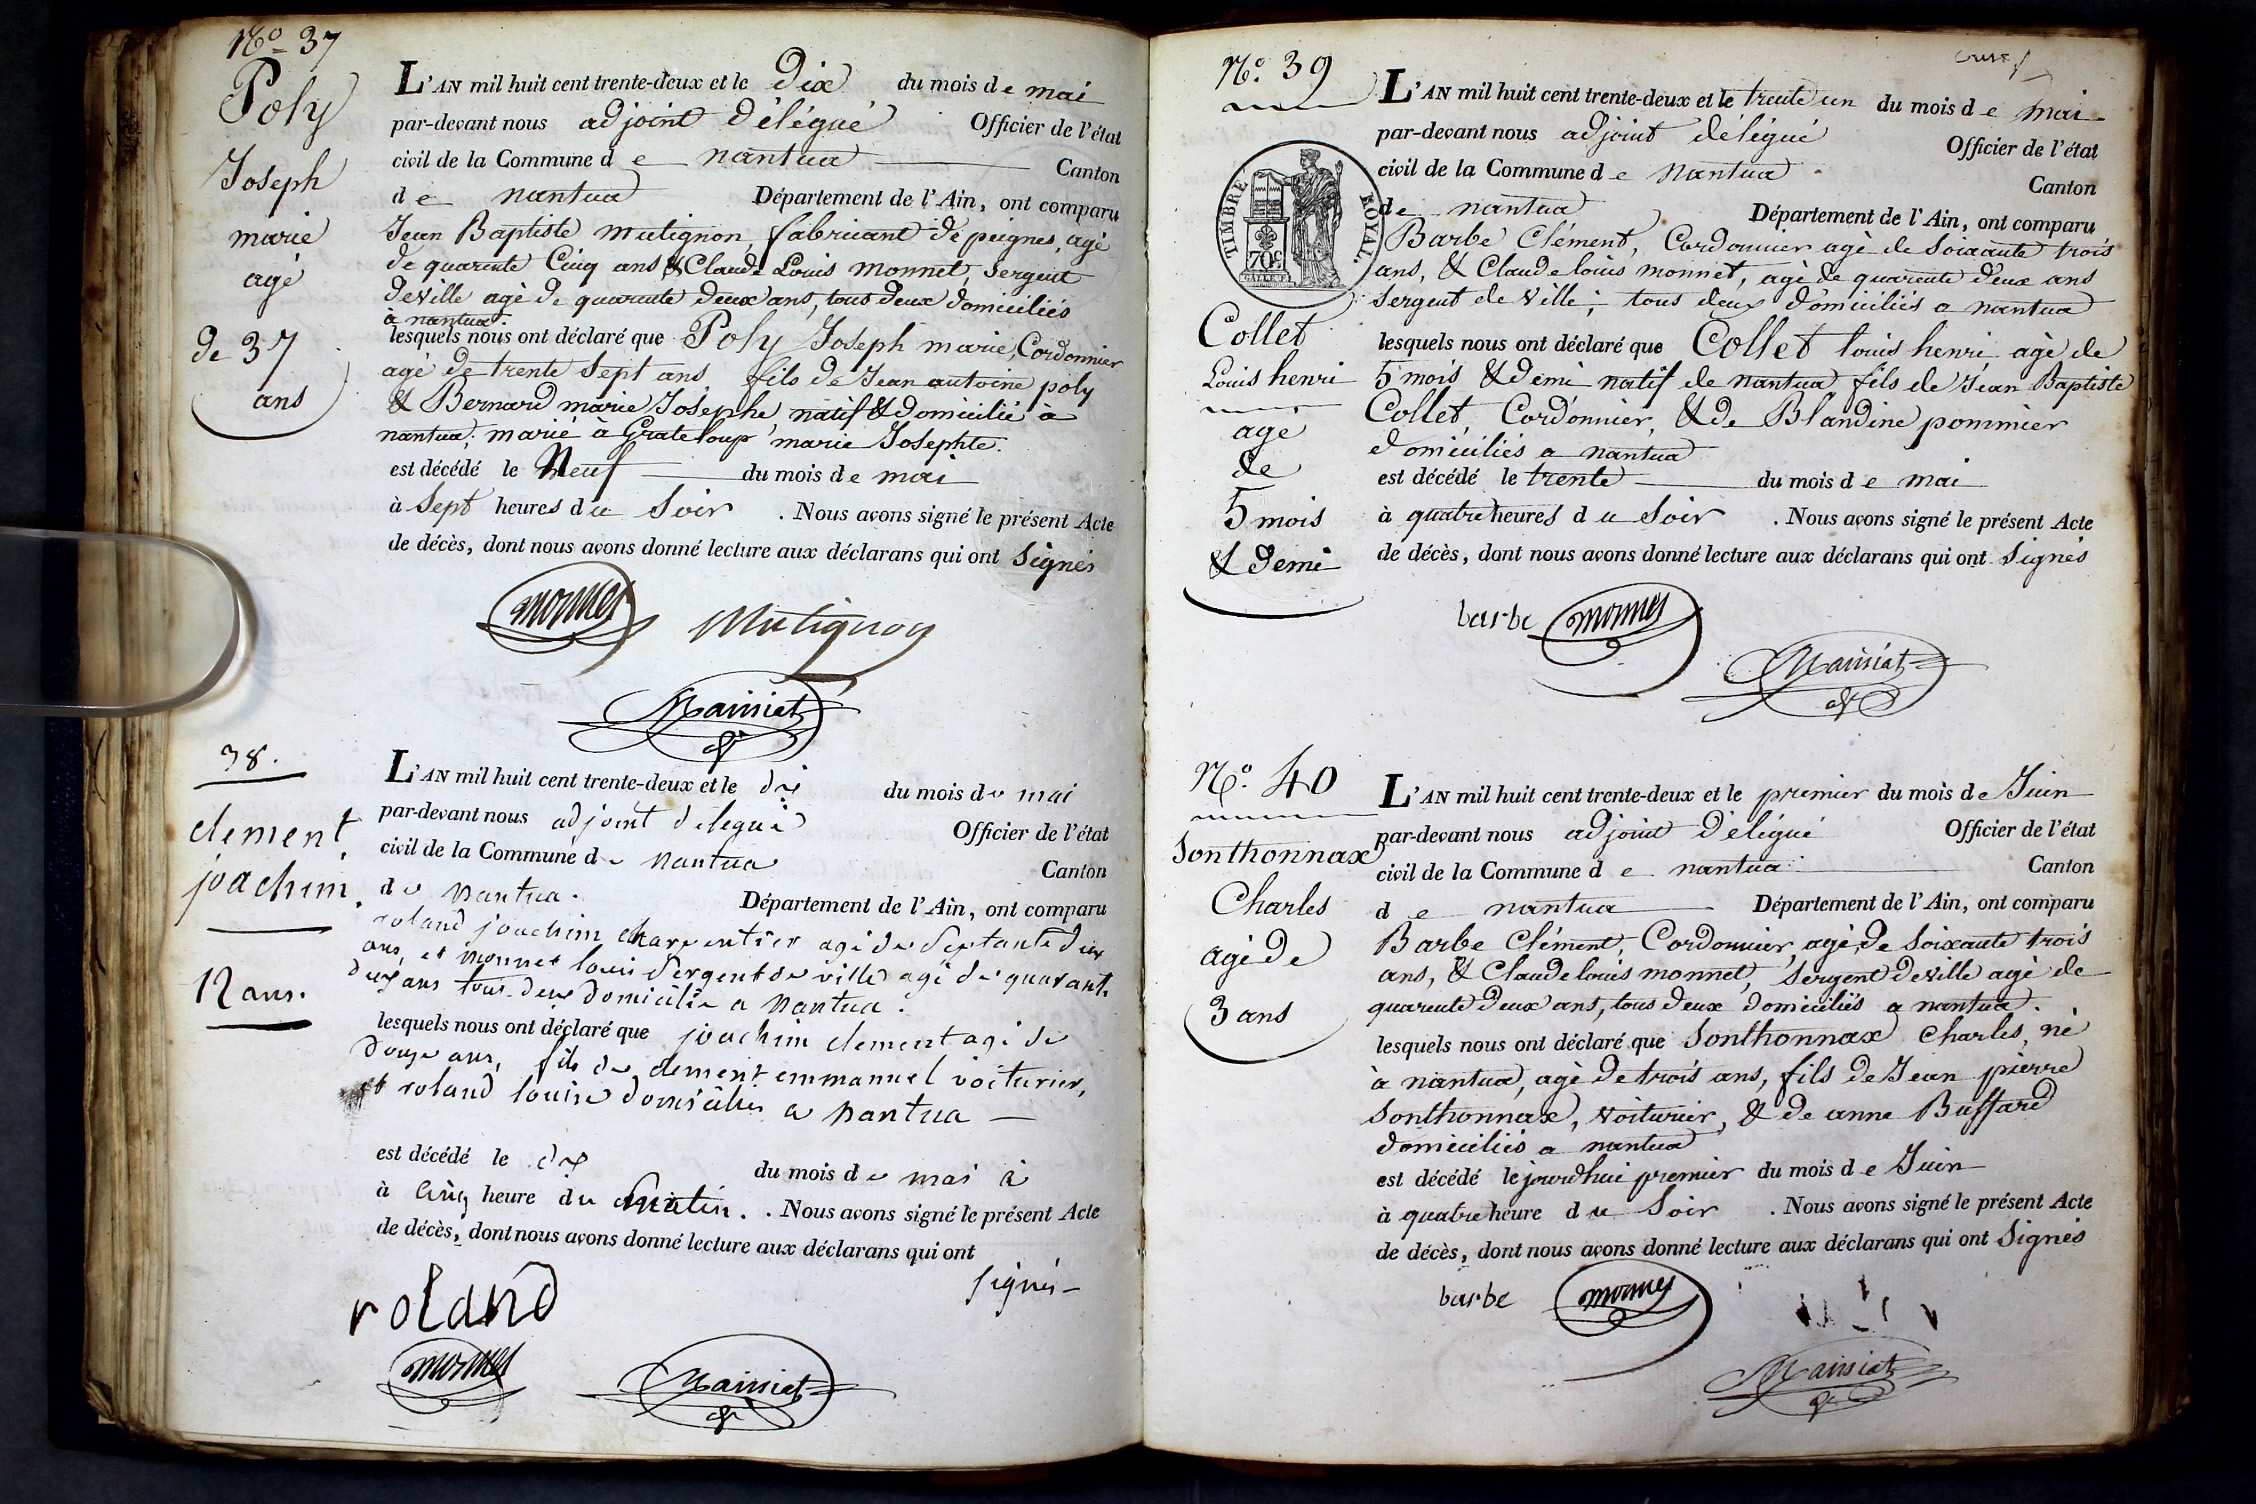 No 37
Poly
Joseph
marie
agé
de 37
ans
L'AN mil huit cent trente-deux et le Dix du mois de mai
par-devant nous adjoint délégué Officier de l'état
civil de la Commune de nantua Canton
de nantua Département de l'Ain, ont comparu
Jean Baptiste mutignon, fabricant de peignes, agé
de quarente Cinq ans & Claude Louis Monnet, Sergent
deville agé de quarante deux ans, tous deux domiciliés
à nantua.
lesquels nous ont déclaré que Poly Joseph marie, Cordonnier
agé de trente Sept ans fils de Jean antoine poly
& Bernard marie Josephe natif & domicilié à
nantua; marié à Grateloup marie Josephte.
est décédé le Neuf du mois de mai
à Sept heures du Soir . Nous avons signé le présent Acte
de décès, dont nous avons donné lecture aux déclarans qui ont Signés
monnet Mutignon
Mainiat
38.
clement
joachim.
12 ans.
L'AN mil huit cent trente-deux et le dix du mois de mai
par-devant nous adjoint delegué Officier de l'état
civil de la Commune de nantua Canton
de nantua. Département de l'Ain, ont comparu
roland joachim charpentier agé de septante deux
ans, et monnet louis sergent de ville agé de quarante
deux ans tous deux domicilié a nantua.
lesquels nous ont déclaré que joachim clement agé de
douze ans, fils de clement emmanuel voiturier,
et roland louise domiciliés a nantua
est décédé le dix du mois de mai à
à cinq heure du matin. . Nous avons signé le présent Acte
de décès, dont nous avons donné lecture aux déclarans qui ont
signés
roland
monnet Mainiat
No. 39
TIMBRE ROYAL.
70c
Collet
Louis henri
agé
de
5 mois
& demi
L'AN mil huit cent trente-deux et le trente un du mois de mai
par-devant nous adjoint délégué Officier de l'état
civil de la Commune de Nantua Canton
de nantua Département de l'Ain, ont comparu
Barbe Clément, Cordonnier agé de Soixante trois
ans, & Claude louis monnet, agé de quarente deux ans
Sergent de Ville; tous deux domiciliés a nantua
lesquels nous ont déclaré que Collet louis henri agé de
5 mois & demi natif de nantua fils de Jean Baptiste
Collet, Cordonnier, & de Blandine pommier
domiciliés a nantua
est décédé le trente du mois de mai
à quatre heures du Soir . Nous avons signé le présent Acte
de décès, dont nous avons donné lecture aux déclarans qui ont Signés
barbe monnet
Mainiat
No. 40
Sonthonnax
Charles
agé de
3 ans
L'AN mil huit cent trente-deux et le premier du mois de Juin
par-devant nous adjoint délégué Officier de l'état
civil de la Commune de nantua Canton
de nantua Département de l'Ain, ont comparu
Barbe Clément, Cordonnier, agé de Soixante trois
ans, & Claude louis monnet, Sergent deville agé de
quarente deux ans, tous deux domiciliés a nantua.
lesquels nous ont déclaré que Sonthonnax Charles, né
à nantua, agé de trois ans, fils de Jean pierre
Sonthonnax, Voiturier, & de anne Buffard
domiciliés a nantua
est décédé le jourdhui premier du mois de Juin
à quatre heure du Soir . Nous avons signé le présent Acte
de décès, dont nous avons donné lecture aux déclarans qui ont Signés
barbe monnet
Mainiat